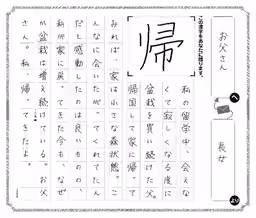 お父さん
へ
長女
より
この漢字をあなたに贈ります。
帰
私の留学中、会えな
しくなる度に
盆栽を買い続けた父。
帰国して家に帰って
みれば、家は小さな森状態。こ
んなに会いたがってくれてたん
だと感動したのは良いものの、
私が家に戻ってきた今も、なぜ
か盆栽は増え続けている。お父
さん。私、帰ってきたよ。